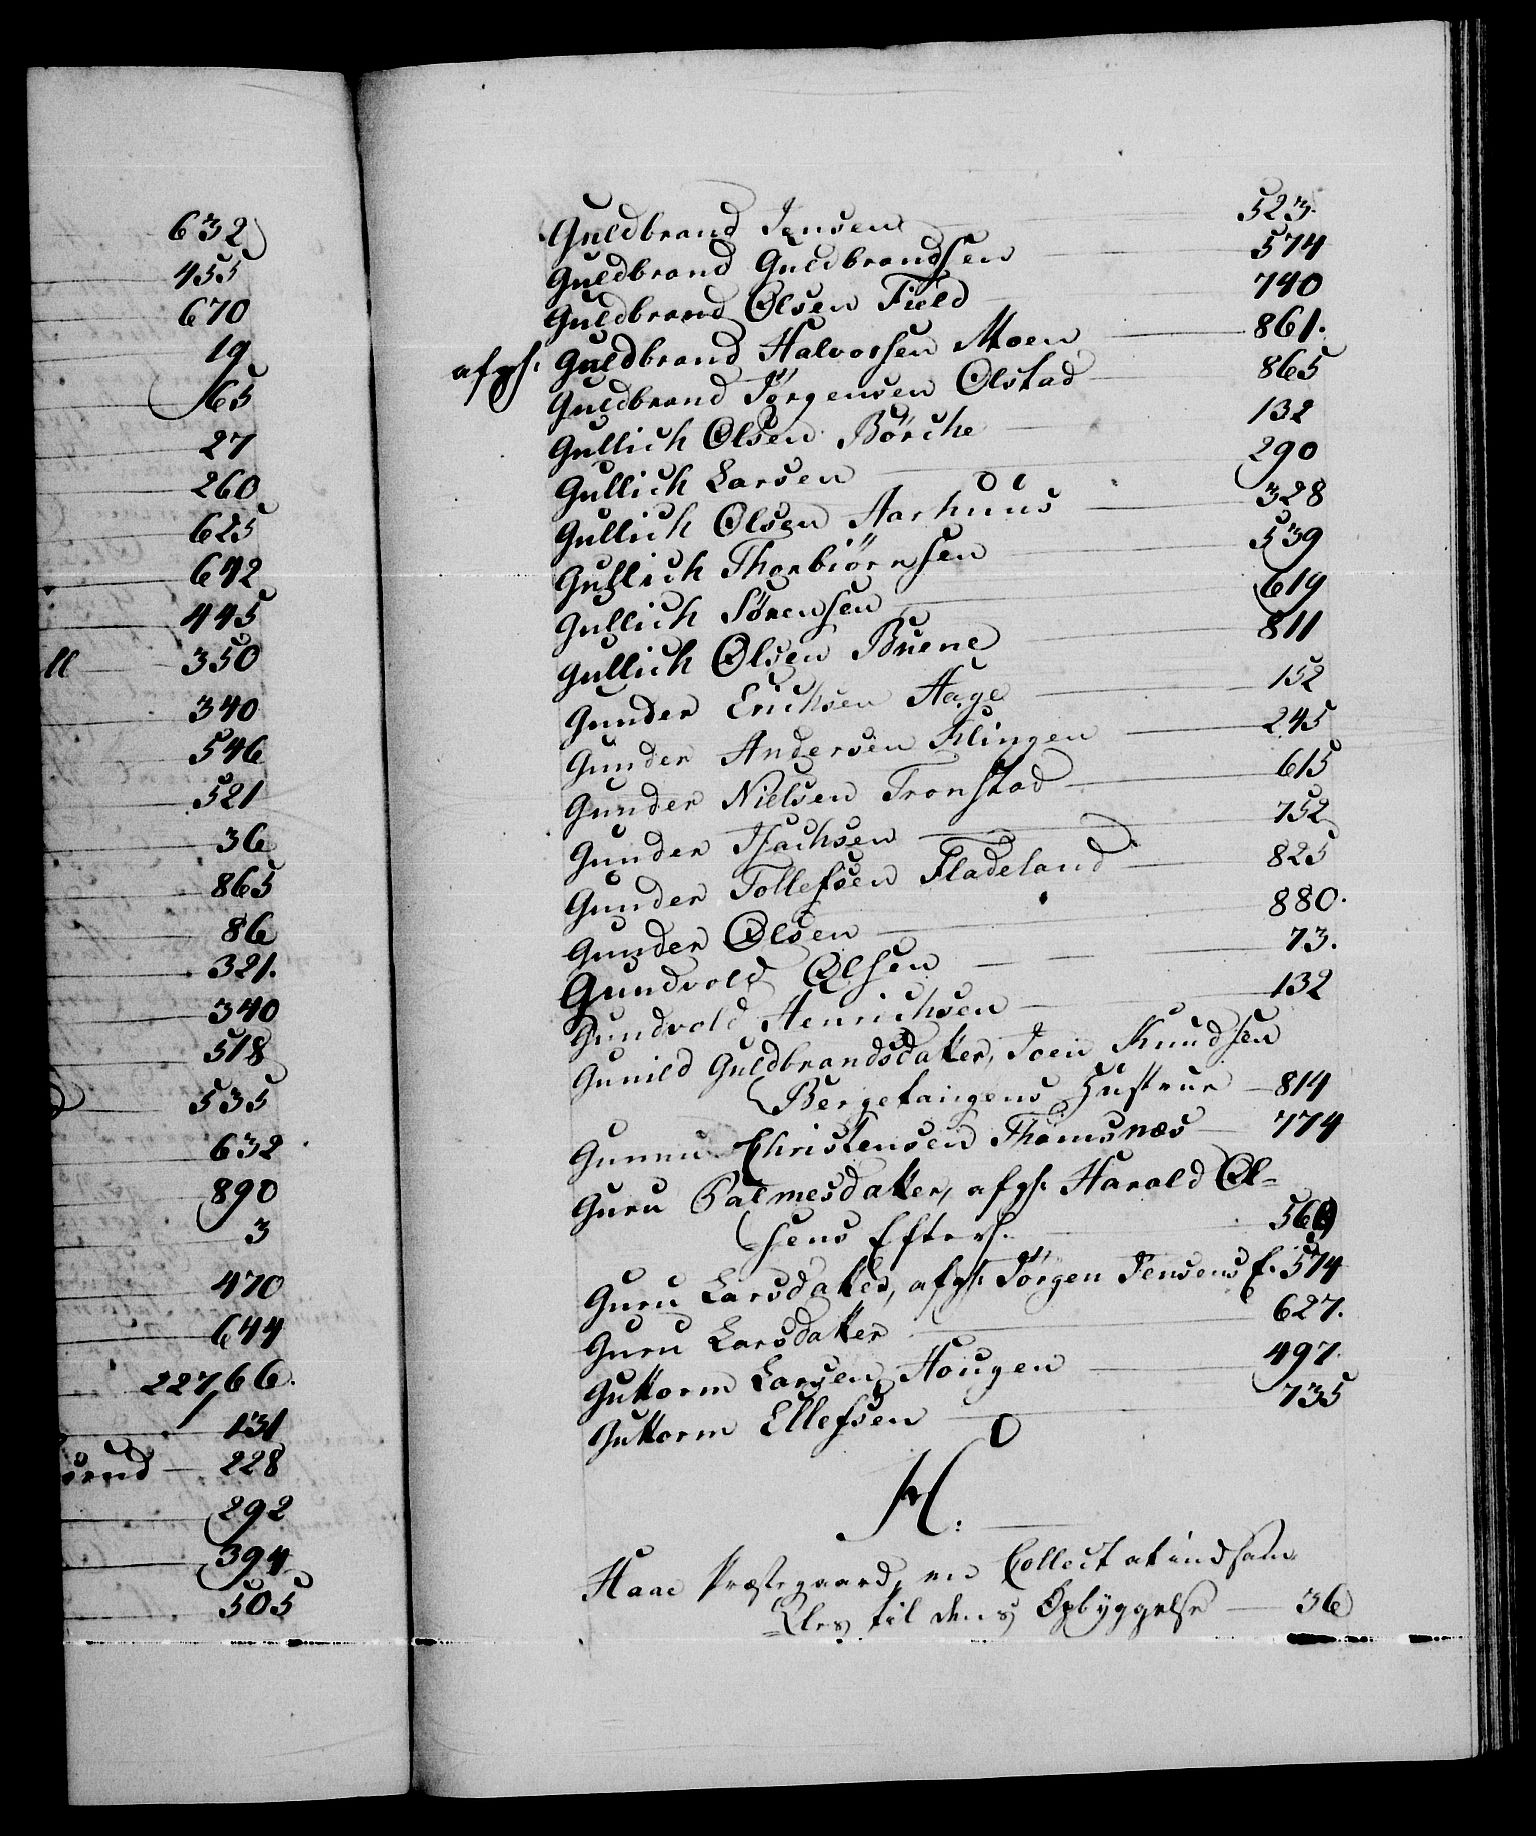 632
455
670
19
65
27
260
625
642
445
ll 350
340
546
521
36
865
86
321.
340
518
535
632
890
3
470
644
227, 66.
131
228
292
394
505
Guldbrand Jensen 523.
Guldbrand Guldbrandsen 574
Guldbrand Olsen Field 740
afgh: Guldbrand Halvorsen Moen 861.
Guldbrand Jörgensen Olstad 865
Gullich Olsen Börche 132
Gullich Larsen 290
Gullich Olsen Aarhuus 328
Gullich Thorbiörnsen 539
Gullich Sörensen 619
Gullich Olsen Buene 811
Gunder Erichsen Aage 152
Gunder Andersen Klingen 245
Gunder Nielsen Tronstad 615
Gunder Isachsen 752
Gunder Tollefsen Fladeland 825
Gunder Olsen 880.
Gundvold Olsen 73.
Gundvold Henrichsen 132
Gunild Guldbrandsdatter, Joen Knudsen
Bergetangens Hustrue 814
Christensen Thomsnæs 774
Guru Palmesdatter, afgh: Harald Ol-
sens Efterl. 566
Guru Larsdatter, afgh: Jörgen Jensens E. 574
Guru Larsdatter 627.
Guttorm Larsen Hougen 497
Guttorm Ellefsen 735
H:
Haae Præstegaard, en Collect at indsam-
=les til dens Opbyggelse 36